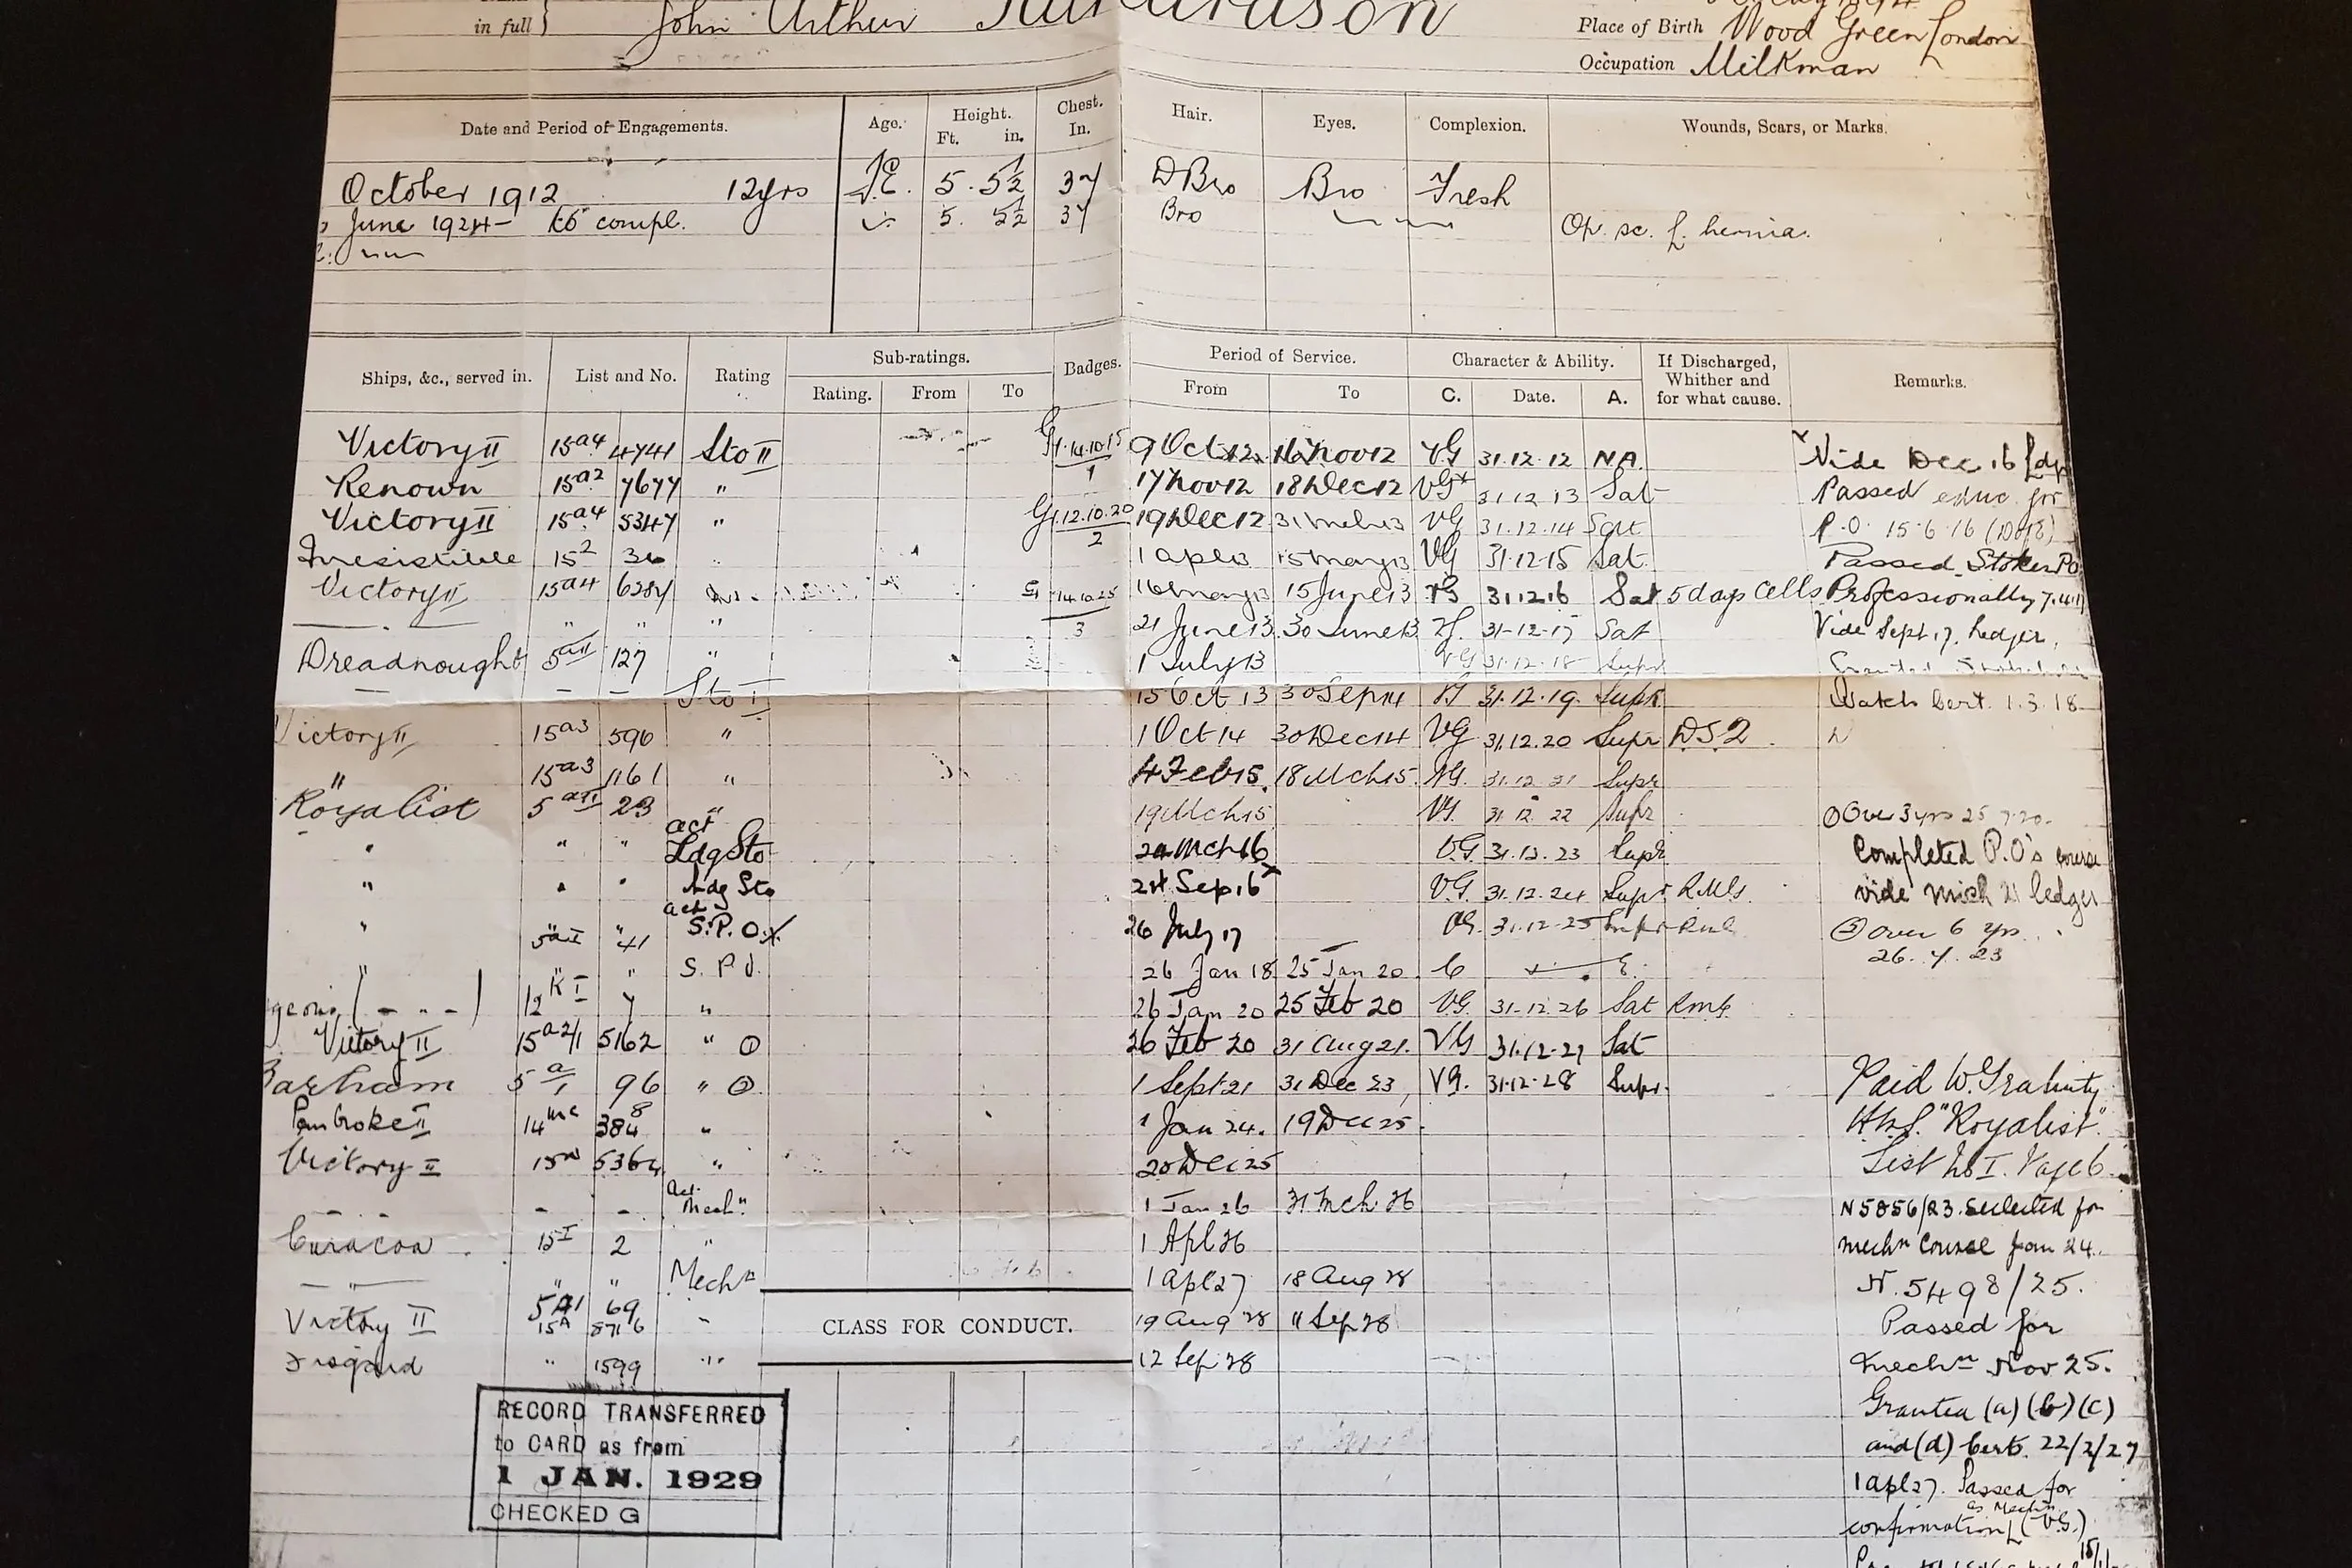 in full John Arthur
Place of Birth Wood Green London
Occupation Milkman
Date and Period of Engagements. Age. Height. Ft. in. Chest. In. Hair. Eyes. Complexion. Wounds, Scars, or Marks.
October 1912 12yrs 5. 5½ 37 D Bro Bro Fresh
June 1924 to compl. 5. 5½ 37 Bro Op. sc. L. hernia.
Ships, &c., served in. List and No. Rating Sub-ratings. Rating. From To Badges. Period of Service. From To Character & Ability. C. Date. A. If Discharged, Whither and for what cause. Remarks.
Victory II 15a4 4741 Sto II G 1.14.10.15 1 9 Oct 12 16 Nov 12 VG 31.12.12 NA. Vide Dec 16 Ldgr
Renown 15a2 7677 " 17 Nov 12 18 Dec 12 VG* 31.12.13 Sat Passed educ. for
Victory II 15a4 5347 " G 1.12.10.20 2 19 Dec 12 31 Mch 13 VG 31.12.14 Sat P.O. 15.6.16
Irresistible 15 2 36 " 1 Apl 13 15 May 13 VG 31.12.15 Sat Passed Stoker PO
Victory II 15a4 6284 14.10.25 3 16 May 13 15 June 13 VG 31.12.16 Sat 5 days Cells Professionally
" " " 21 June 13 30 June 13 31-12-17 Sat Vide Sept 17. Ledger.
Dreadnought 5aII 127 " 1 July 13 VG 31.12.18 Supr
- - Sto I 15 Oct 13 30 Sep 14 VG 31.12.19. Supr Watch Cert. 1.3.18
Victory II 15a3 596 " 1 Oct 14 30 Dec 14 VG 31.12.20 Supr D.S.2.
" 15a3 1161 " 4 Feb 15. 18 Mch 15. VG. 31.12.21 Supr
Royalist 5aII 23 " 19 Mch 15 VG. 31.12.22 Supr ① Over 3 yrs 25.7.20.
" " " act Ldg Sto 24 Mch 16 V.G. 31.12.23 Supr Completed P.O's course
" " " Ldg Sto Sep 16 V.G. 31.12.24 Supr RMG. vide Mich 21 ledger
" 5aI 41 act S.P.O. 26 July 17 VG. 31.12.25 Supr RMG ② Over 6 yrs
" " " S.P.O. 26 Jan 18 25 Jan 20 26.7.23
12 KI 7 " 26 Jan 20 25 Feb 20 VG. 31.12.26 Sat RMG
Victory II 15a2/1 5162 " ① 26 Feb 20 31 Aug 21. VG 31.12.27 Sat
Barham 5 a/1 96 " ② 1 Sept 21 31 Dec 23, VG. 31.12.28 Supr. Paid W. Gratuity
Pembroke II 14 " 1 Jan 24. 19 Dec 25. H.M.S. "Royalist"
Victory II 15 5364 " 20 Dec 25 List No I. Page 6
- - - Act. Mechn. 1 Jan 26 31 Mch 26 N 5856/23. Selected for
Curacoa 15I 2 " 1 Apl 26 mechn course Jan 24.
" " " Mechn 1 Apl 27 18 Aug 28 N. 5498/25.
Victory II 5A1 69 15A 8716 CLASS FOR CONDUCT. 19 Aug 28 11 Sep 28 Passed for
Fisgard " 1599 " 12 Sep 28 Mechn Nov 25.
RECORD TRANSFERRED Granted (a) (b) (c)
to CARD as from and (d) Certs. 22/2/27
1 JAN. 1929 1 Apl 27. Passed for
CHECKED G as Mechn confirmation (V.G.)